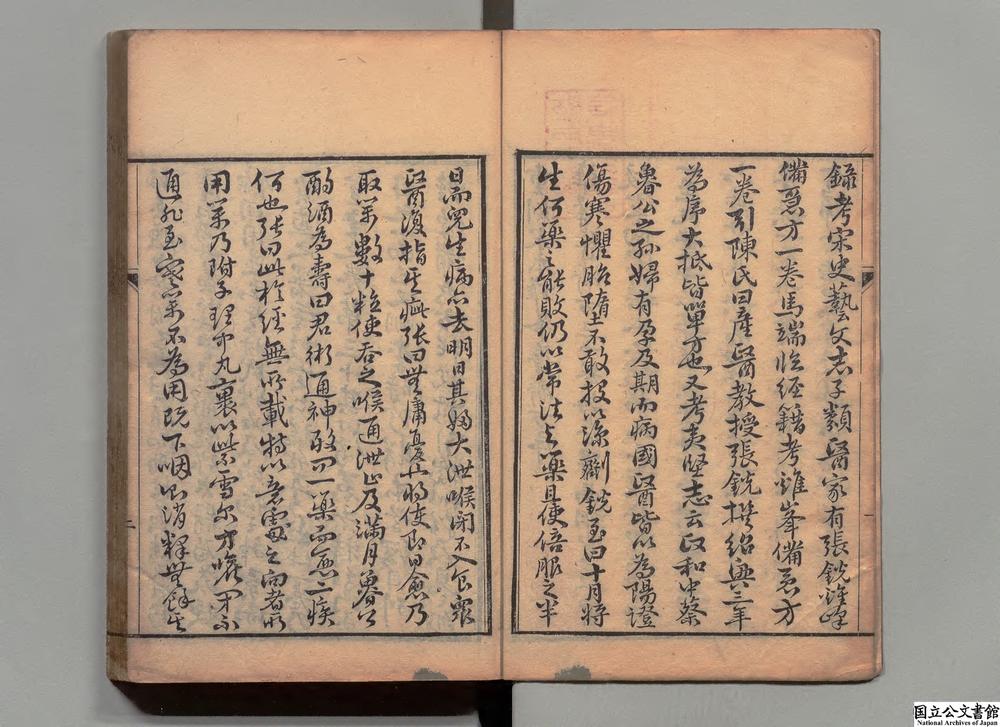 錄考宋史藝文志子類醫家有張銳雞峰
備急方一卷馬端臨經籍考雞峯備急方
一卷引陳氏曰產醫教授張銳撰紹興三年
爲序大抵皆單方也又考夷堅志云政和中蔡
魯公之孫婦有孕及期而病國醫皆以爲陽證
傷寒懼胎墮不敢投以涼劑銳至曰十月將
生何藥之能敗仍以常法与藥且使倍服之半
日而兒生病亦去明日其婦大泄喉閉不入食衆
醫復指其疵張曰無庸憂也將使卽日愈乃
取藥數十粒使吞之喉通泄止及滿月魯公
酌酒為壽曰君術通神敢問一藥而愈二疾
何也張曰此於經無所載特以意處之向者所
用藥乃附子理中丸裹以紫雪尔方喉閉不
通非至寒藥不為用既下咽則消釋無餘其
一
二
国立公文書館
National Archives of Japan